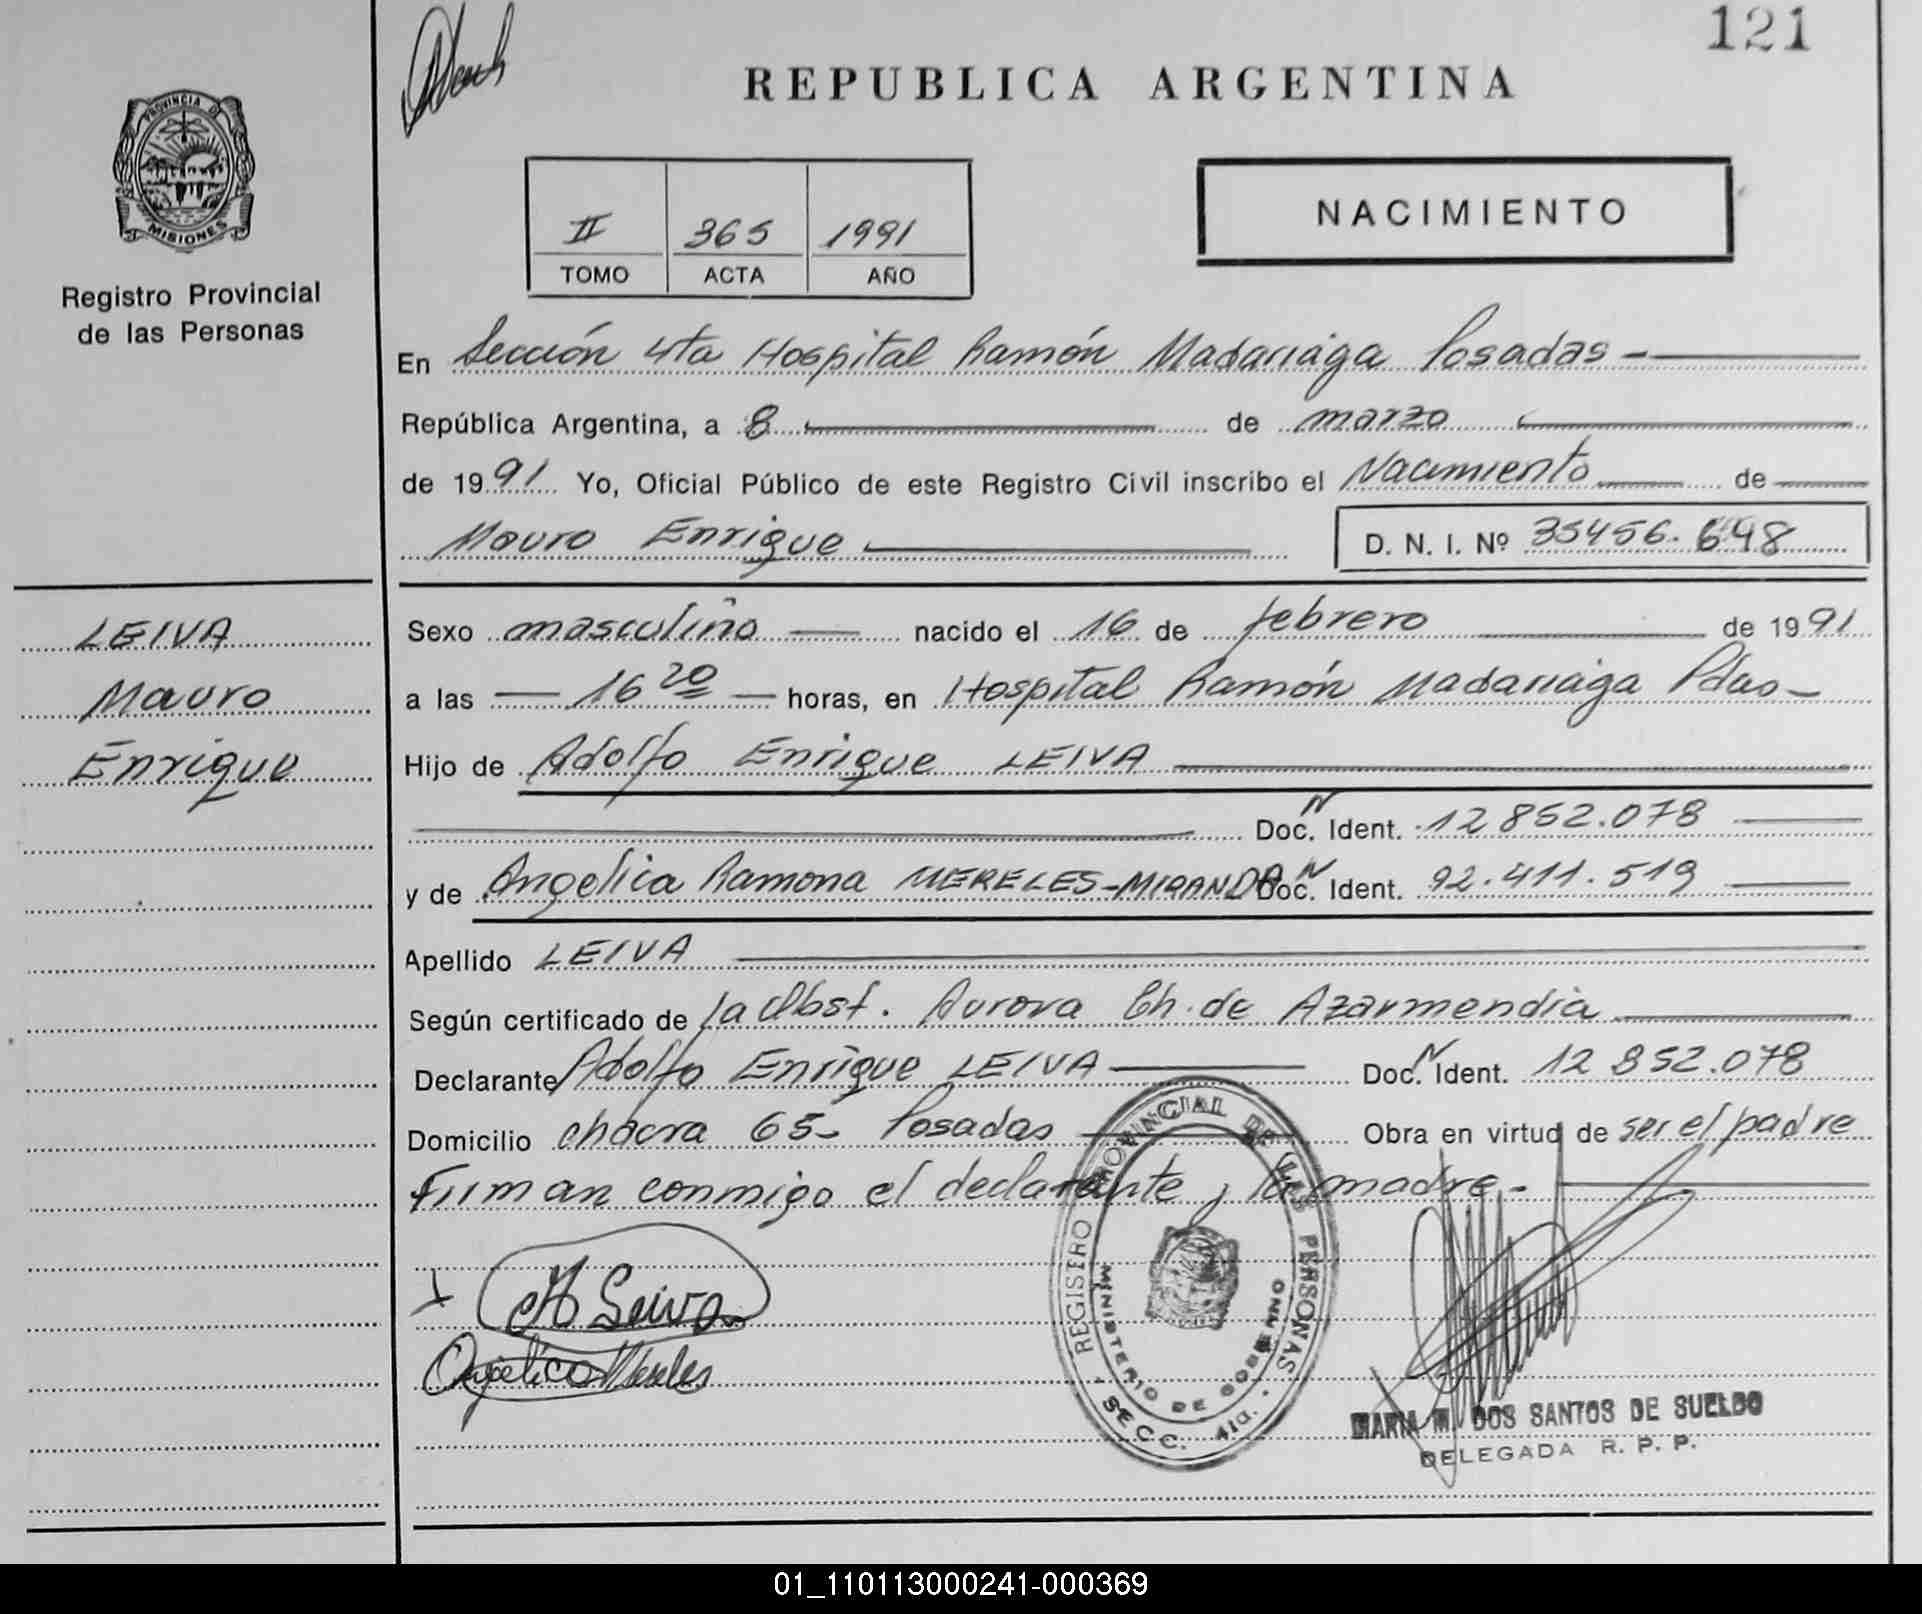 121
REPUBLICA ARGENTINA
PROVINCIA DE
MISIONES
Registro Provincial
de las Personas
II 365 1991
TOMO ACTA AÑO
NACIMIENTO
En Sección 4ta Hospital Ramón Madariaga Posadas -
República Argentina, a 8 de marzo
de 1991 Yo, Oficial Público de este Registro Civil inscribo el Nacimiento de
Mauro Enrique D. N. I. Nº 35456.698
LEIVA
Mauro
Enrique
Sexo masculino nacido el 16 de febrero de 1991
a las 16 20 horas, en Hospital Ramón Madariaga Pdas -
Hijo de Adolfo Enrique LEIVA
Doc. N Ident. 12852.078
y de Angelica Ramona MERELES-MIRANDA Doc. N Ident. 92.411.519
Apellido LEIVA
Según certificado de la Obst. Aurora Ch. de Azarmendia
Declarante Adolfo Enrique LEIVA Doc. N Ident. 12 852.078
Domicilio chacra 65- Posadas Obra en virtud de ser el padre
Firman conmigo el declarante y la madre -
REGISTRO PROVINCIAL DE LAS PERSONAS
MINISTERIO DE GOBIERNO
SECC. 4ta.
Leiva
Angelica Mereles
MARIA M. DOS SANTOS DE SUELDO
DELEGADA R. P. P.
01_110113000241-000369